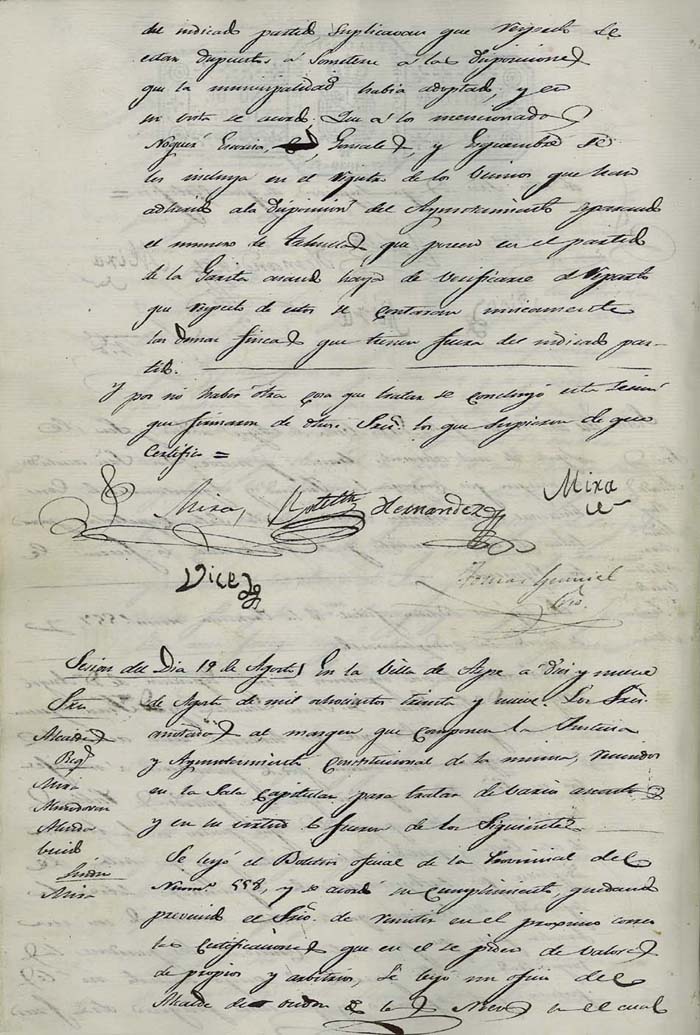 del indicado partido, Suplicavan que respecto de
estar dispuestos á someterse á las disposiciones
que la municipalidad había adoptado, y en
su vista se acordó. Que á los mencionados
Noguera, Gonzalez, y se
les incluya en el registro de los Vecinos que han
adherido ala disposicion del Ayuntamiento separando
el numero de tahullas que poseen en el partido
de la Garita cuando haya de verificarse el Reparto
que respecto de estos se contaran unicamente
las demas fincas que tienen fuera del indicado par-
tido.
Y por no haber otra cosa que tratar se concluyó esta Sesion
que firmaron de dhos. Sres. los que supieron de que
Certifico =
Mira, Hernandez
Mira
Vicedo
Tomas
Srio.
Sesion del Dia 19 de Agosto
En la Villa de Aspe á diez y nueve
Sres.
de Agosto de mil ochocientos treinta y nueve. Los Sres.
Alcaldes
anotados al margen que componen la Justicia
Regs.
y Ayuntamiento Constitucional de la misma, reunidos
Mira
en la Sala Capitular para tratar de varios asuntos
Almodovar
y en su virtud lo fueron de los Siguientes
Se leyó el Boletin oficial de la Provincia del
Sindo.
Mira
Num.º 558, y se acordó su cumplimiento, quedando
prevenido el Srio. de remitir en el proximo correo
las Certificaciones que en el se piden de valores
de propios y arbitrios, Se leyó un oficio del
Alcalde de en el cual